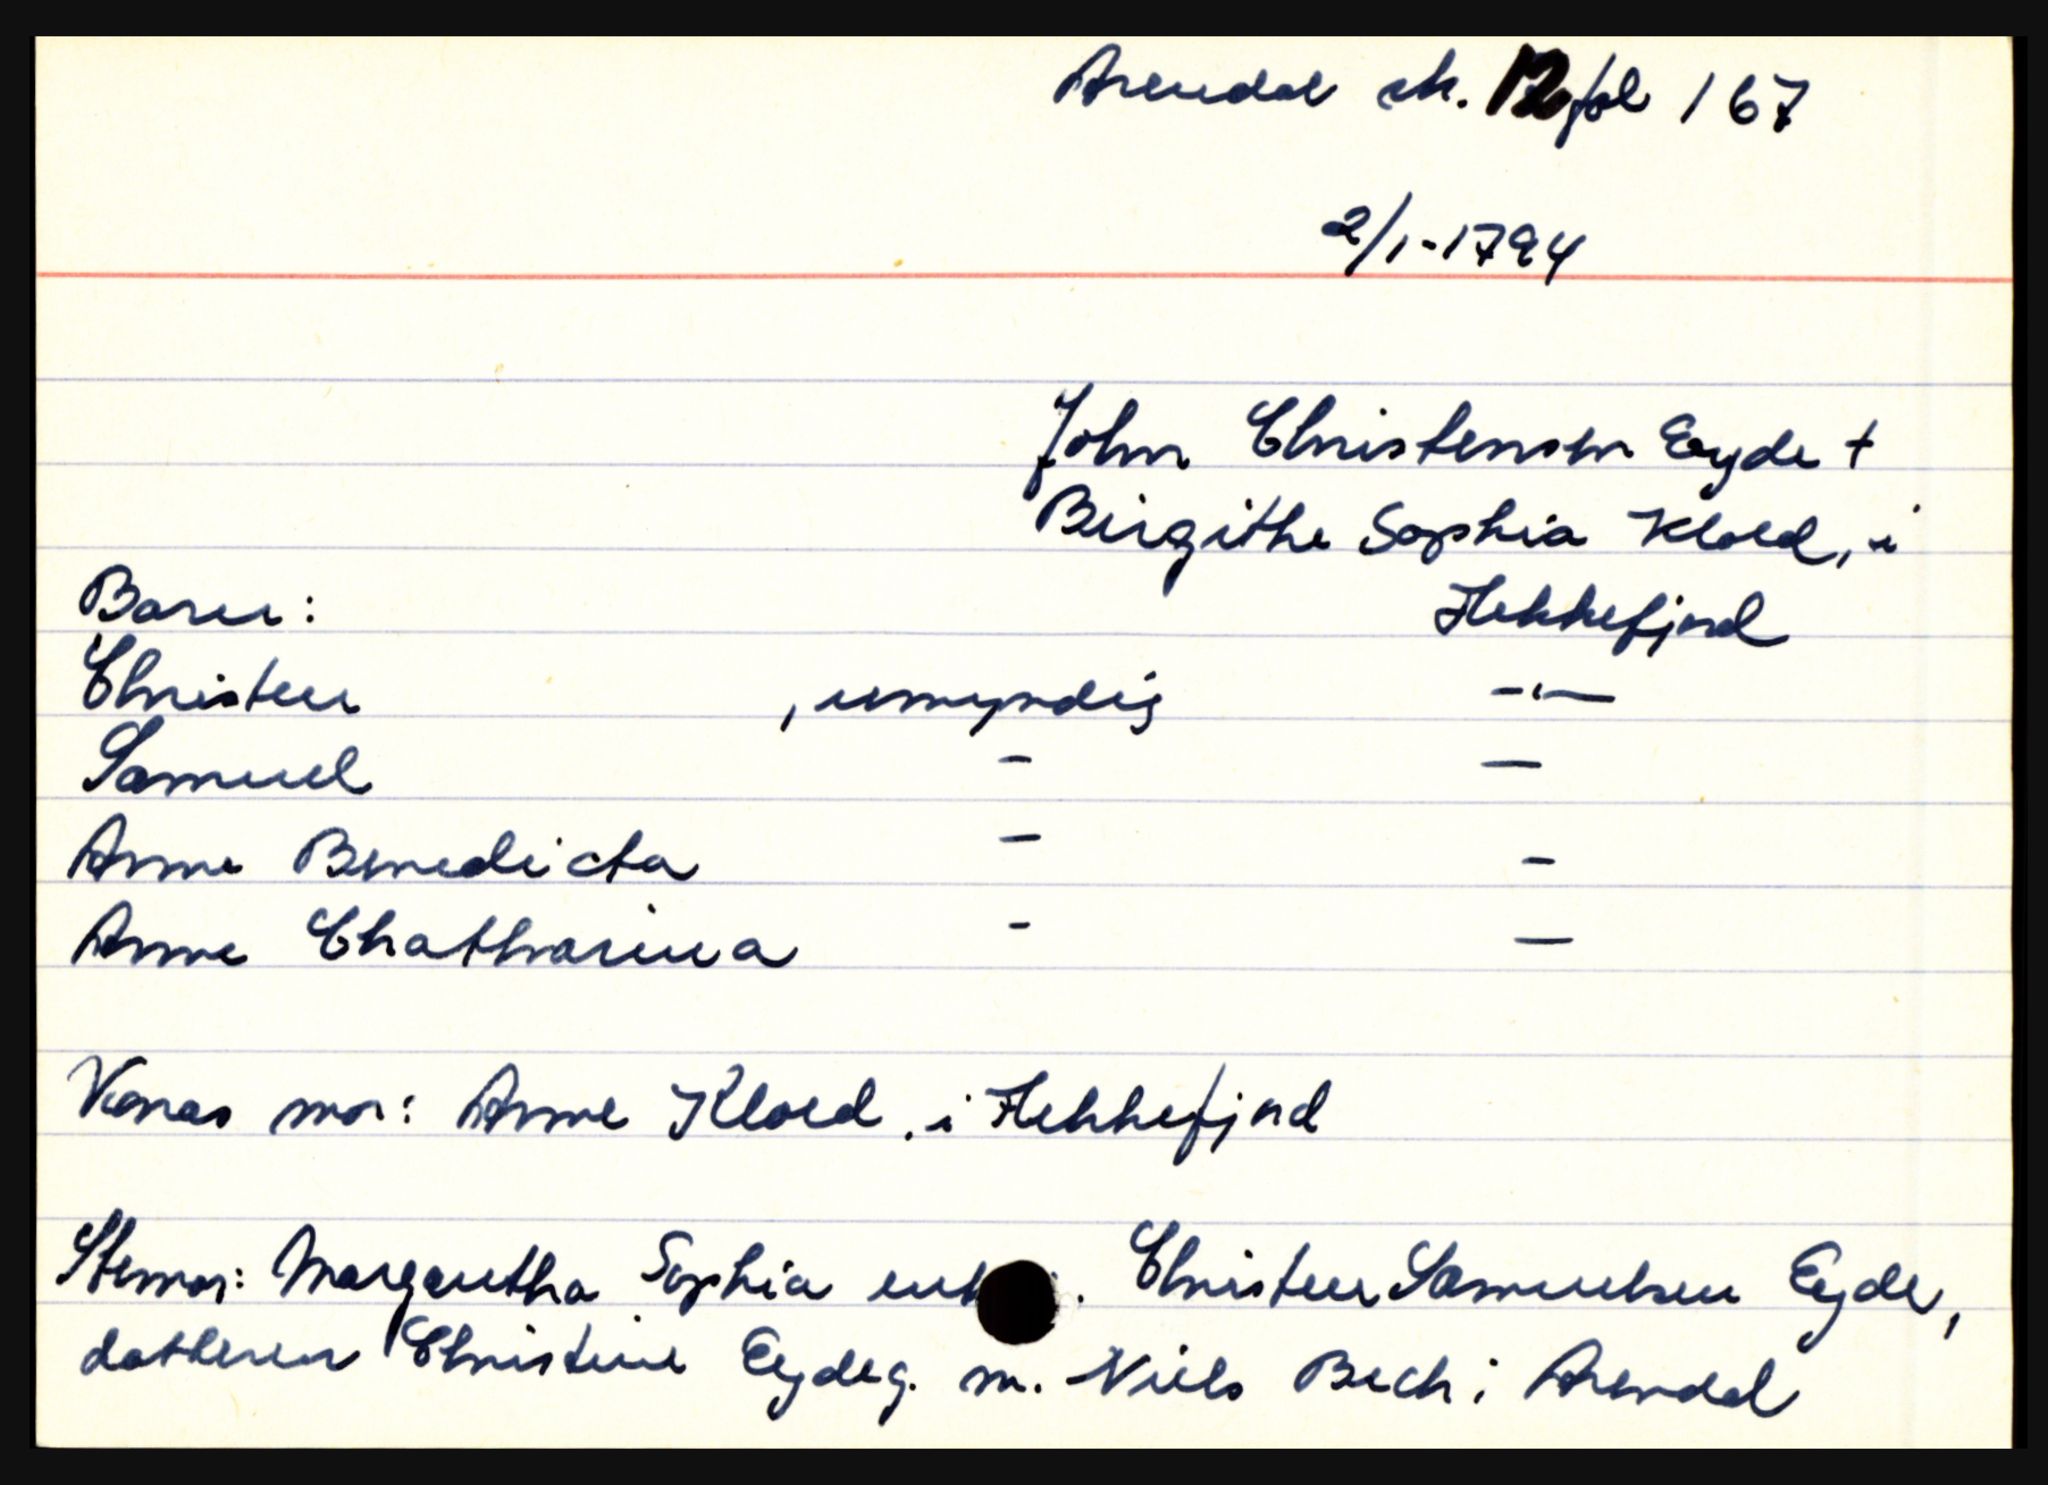 Arendal sk. 12 fol 167
2/1-1794
John Christensen Eyde +
Birgithe Sophia Kloed, i
Flekkefjord
Barn:
Christen , umyndig -"-
Samuel - -
Anne Benedicta - -
Anne Chatharina - -
Konas mor: Anne Kloed, i Flekkefjord
Stemor: Margaretha Sophia Christen Samuelsen Eyde,
datteren Christine Eyde g. m. Niels Bech i Arendal